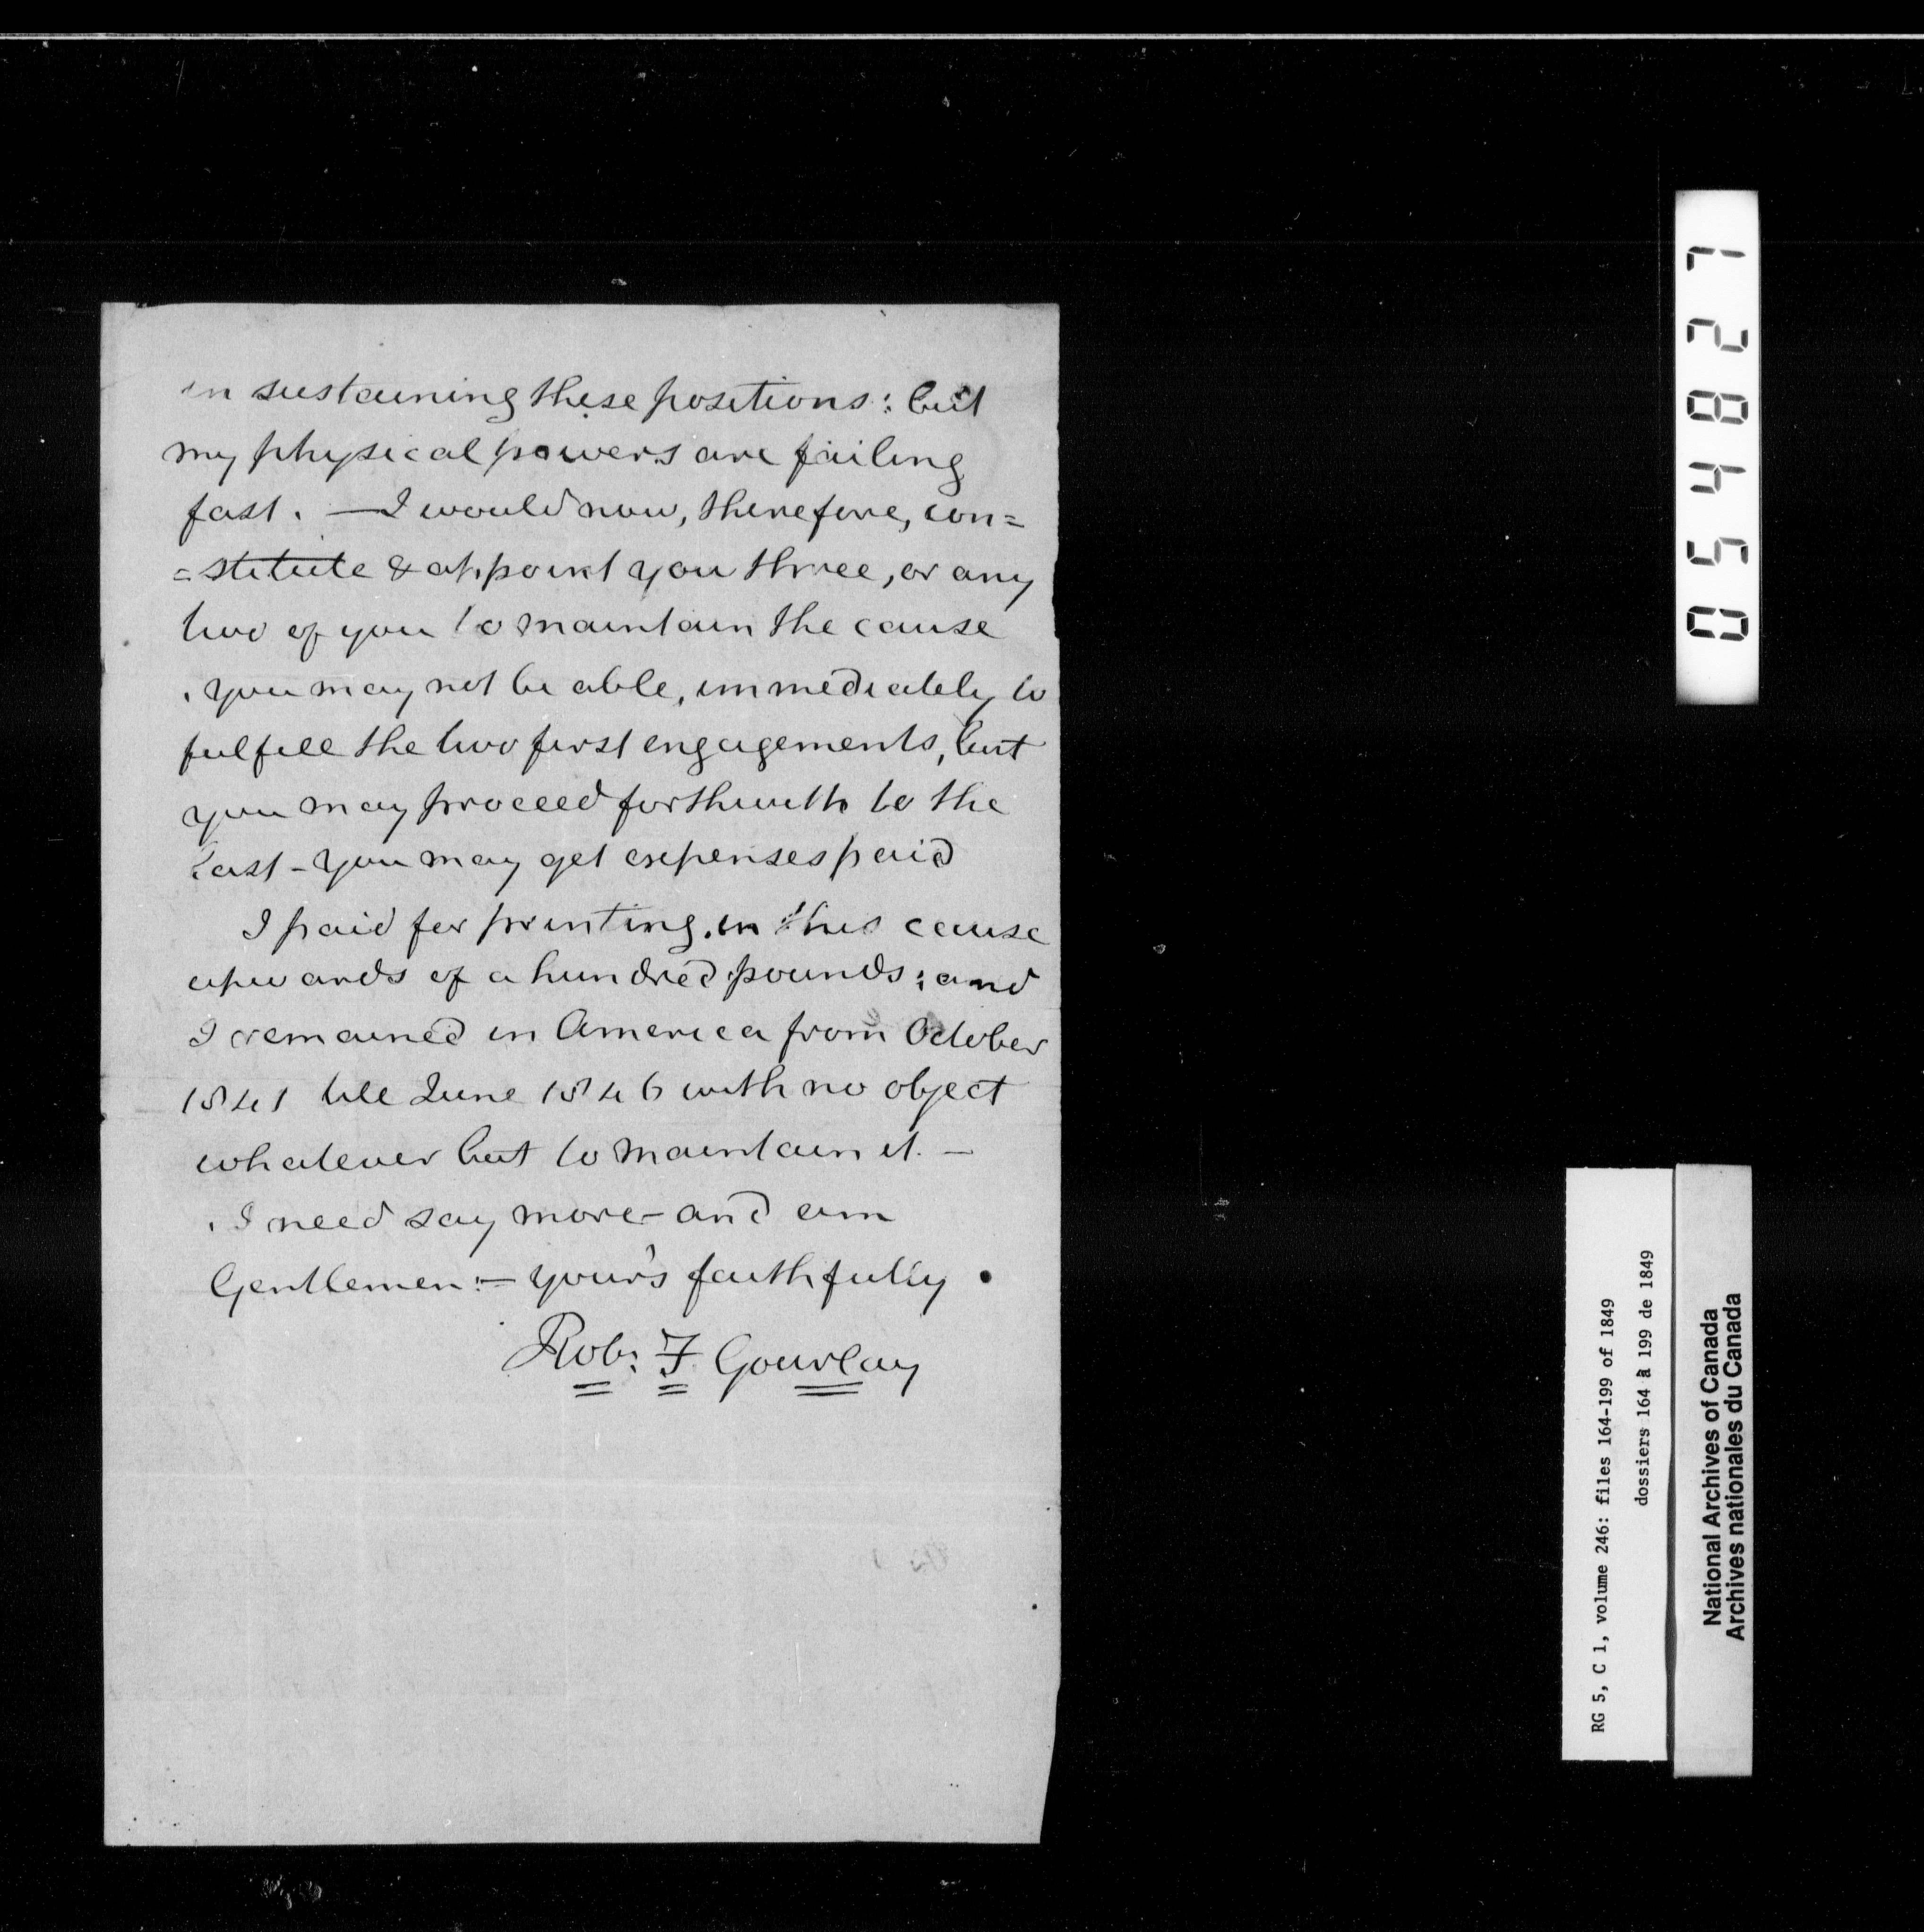 in sustaining these positions: but
my physical powers are failing
fast. — I would now, therefore, con=
=stitute & appoint you three, or any
two of you to maintain the cause
. you may not be able, immediately to
fulfill the two first engagements, but
you may proceed forthwith to the
last - you may get expenses paid
I paid for printing. in this cause
upwards of a hundred pounds: and
I remained in America from October
1841 till June 1846 with no object
whatever but to maintain it. —
. I need say more - and am
Gentlemen:— your's faithfully .
Rob: F. Gourlay
054827
RG 5, C 1, volume 246: files 164-199 of 1849
dossiers 164 à 199 de 1849
National Archives of Canada
Archives nationales du Canada